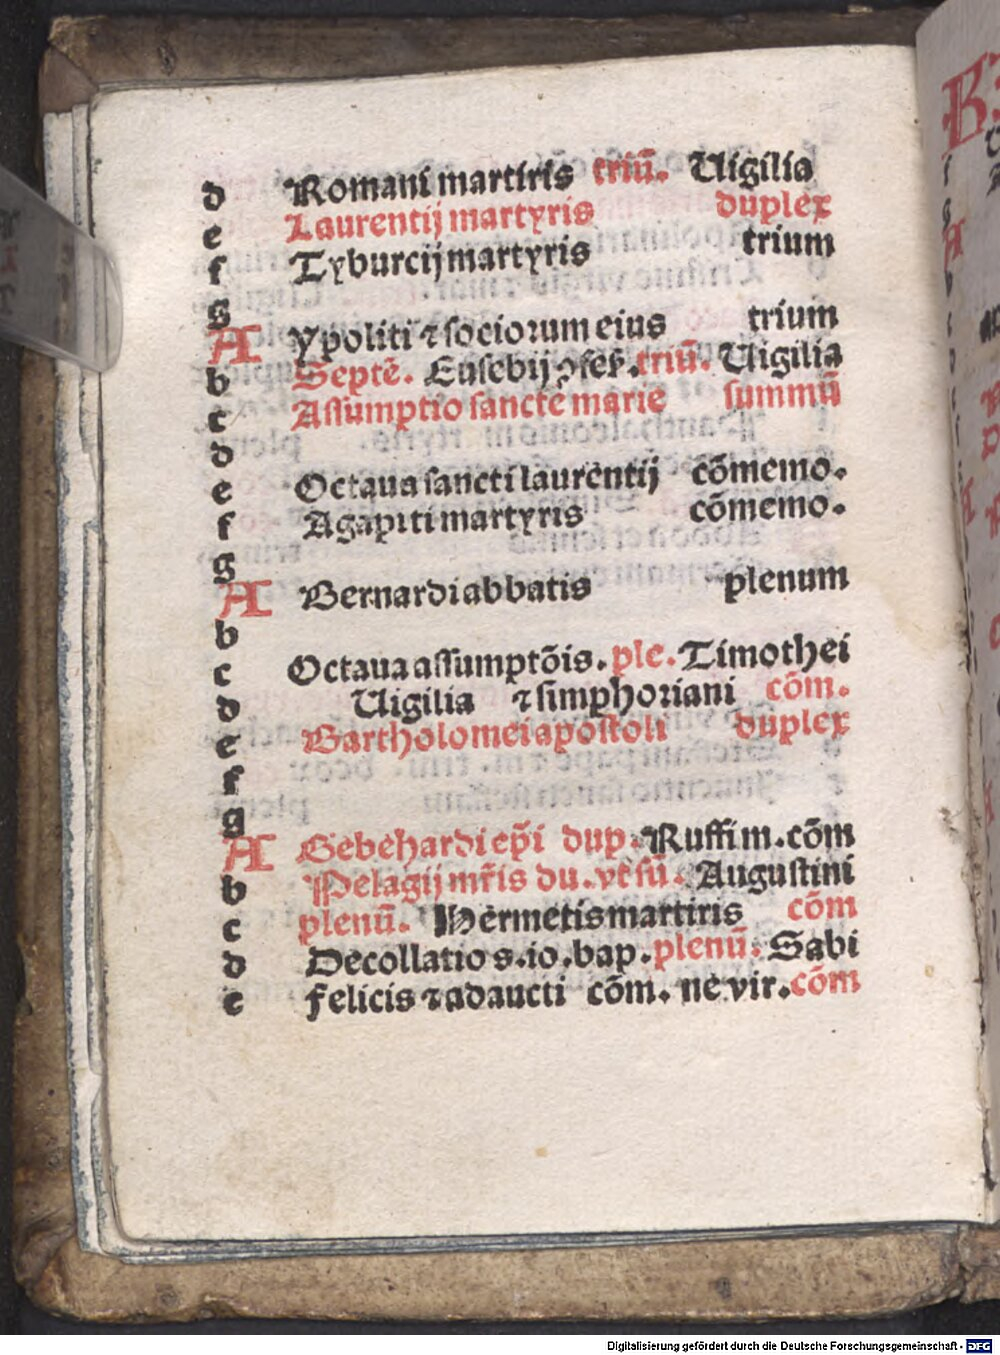 d Romani martiris triū. Uigilia
e Laurentij martyris duplex
f Tyburcij martyris trium
g
A Ypoliti ⁊ sociorum eius trium
b Septē. Eusebij ꝯfeſ. triū. Uigilia
c Aſſumptio ſancte marie ſummū
d
e Octaua ſancti laurentij cōmemo.
f Agapiti martyris cōmemo.
g
A Bernardi abbatis plenum
b
c Octaua aſſumptōis. ple. Timothei
d Uigilia ⁊ ſimphoriani cōm.
e Bartholomei apoſtoli duplex
f
g
A Gebehardi ep̄i dup. Ruffi m. cōm
b Pelagij mr̄is du. vt ſū. Auguſtini
c plenū. Hermetis martiris cōm
d Decollatio s. io. bap. plenū. Sabi
e Felicis ⁊ adaucti cōm. ne vir. cōm
Digitalisierung gefördert durch die Deutsche Forschungsgemeinschaft - DFG